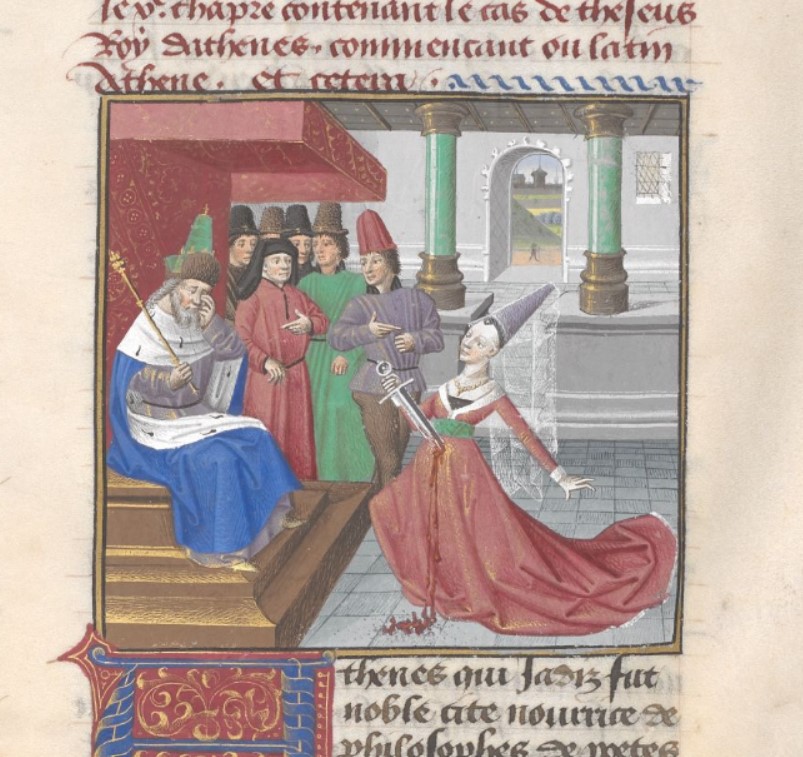 le v.e chapre contenant le cas de theseus
Roy dathenes. commencant ou latin
Athene. Et cetera.
thenes qui Jadiz fut
noble cite nourrice de
philosophes de poetes